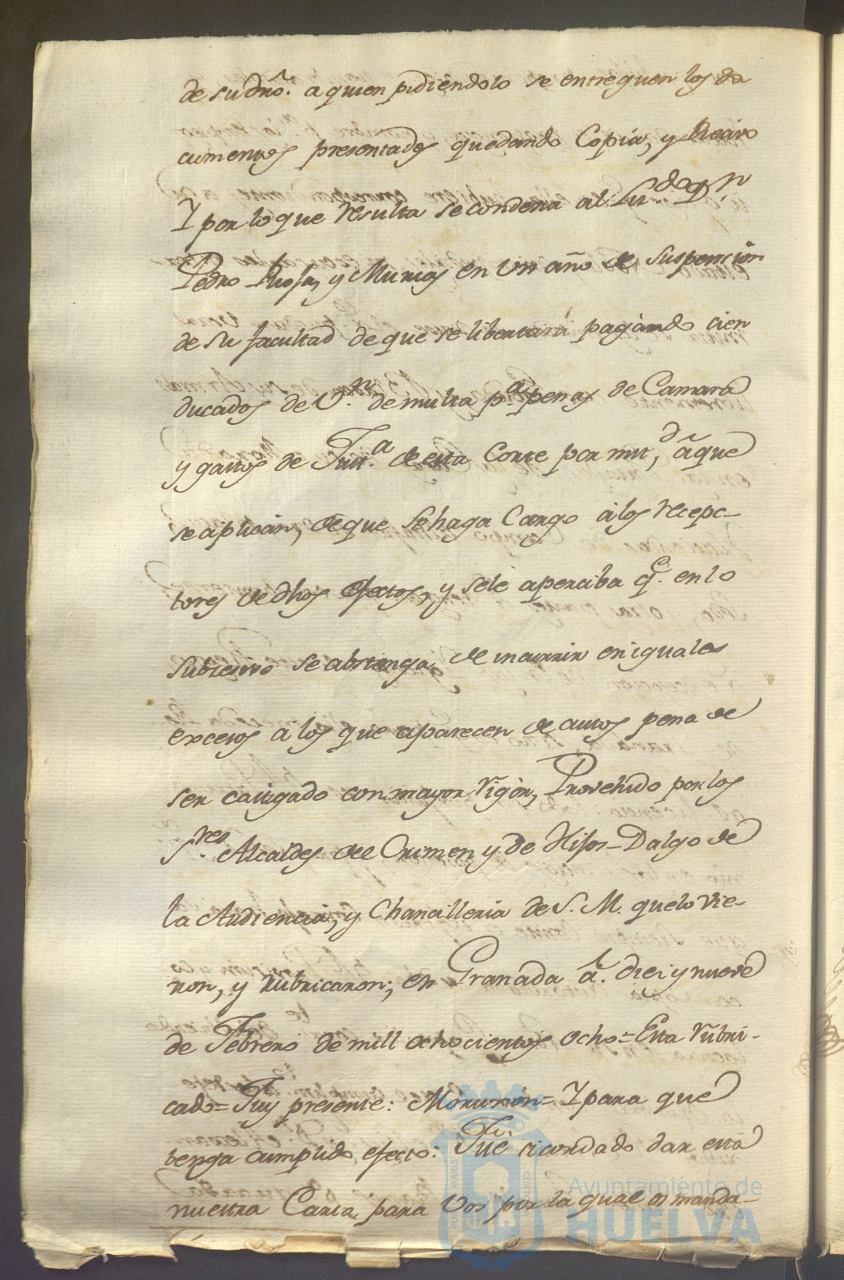 de su dro. a quien pidiendolo se entreguen los do
cumentos presentados quedando Copia, y Recivo
Y por lo que resulta se condena al Lizdo Dn.
Pedro Rosa, y Muñoz en un año de suspension
de su facultad de que se libertará pagando cien
ducados de Vn. de multa pa. penas de Camara
y gastos de Justa. de esta Corte por mitd, á que
se aplican, de que se haga Cargo á los recep-
tores de dhos efectos, y se le aperciba qe. en lo
subcesivo se abstenga, de incurrir en iguales
excesos a los que aparecen de autos pena de
ser castigado con mayor rigór, Provehido por los
Sres. Alcaldes del Crimen y de Hijos-Dalgo de
la Audiencia, y Chancilleria de S. M. que lo vie-
ron, y rubricaron; en Granada á. diez y nueve
de Febrero de mill ochocientos ocho= Esta rubri-
cado= Fuy presente: = Y para que
tenga cumplido efecto: Fué acordado dar esta
nuestra Carta para Vos por la qual os manda-
Ayuntamiento de
HUELVA